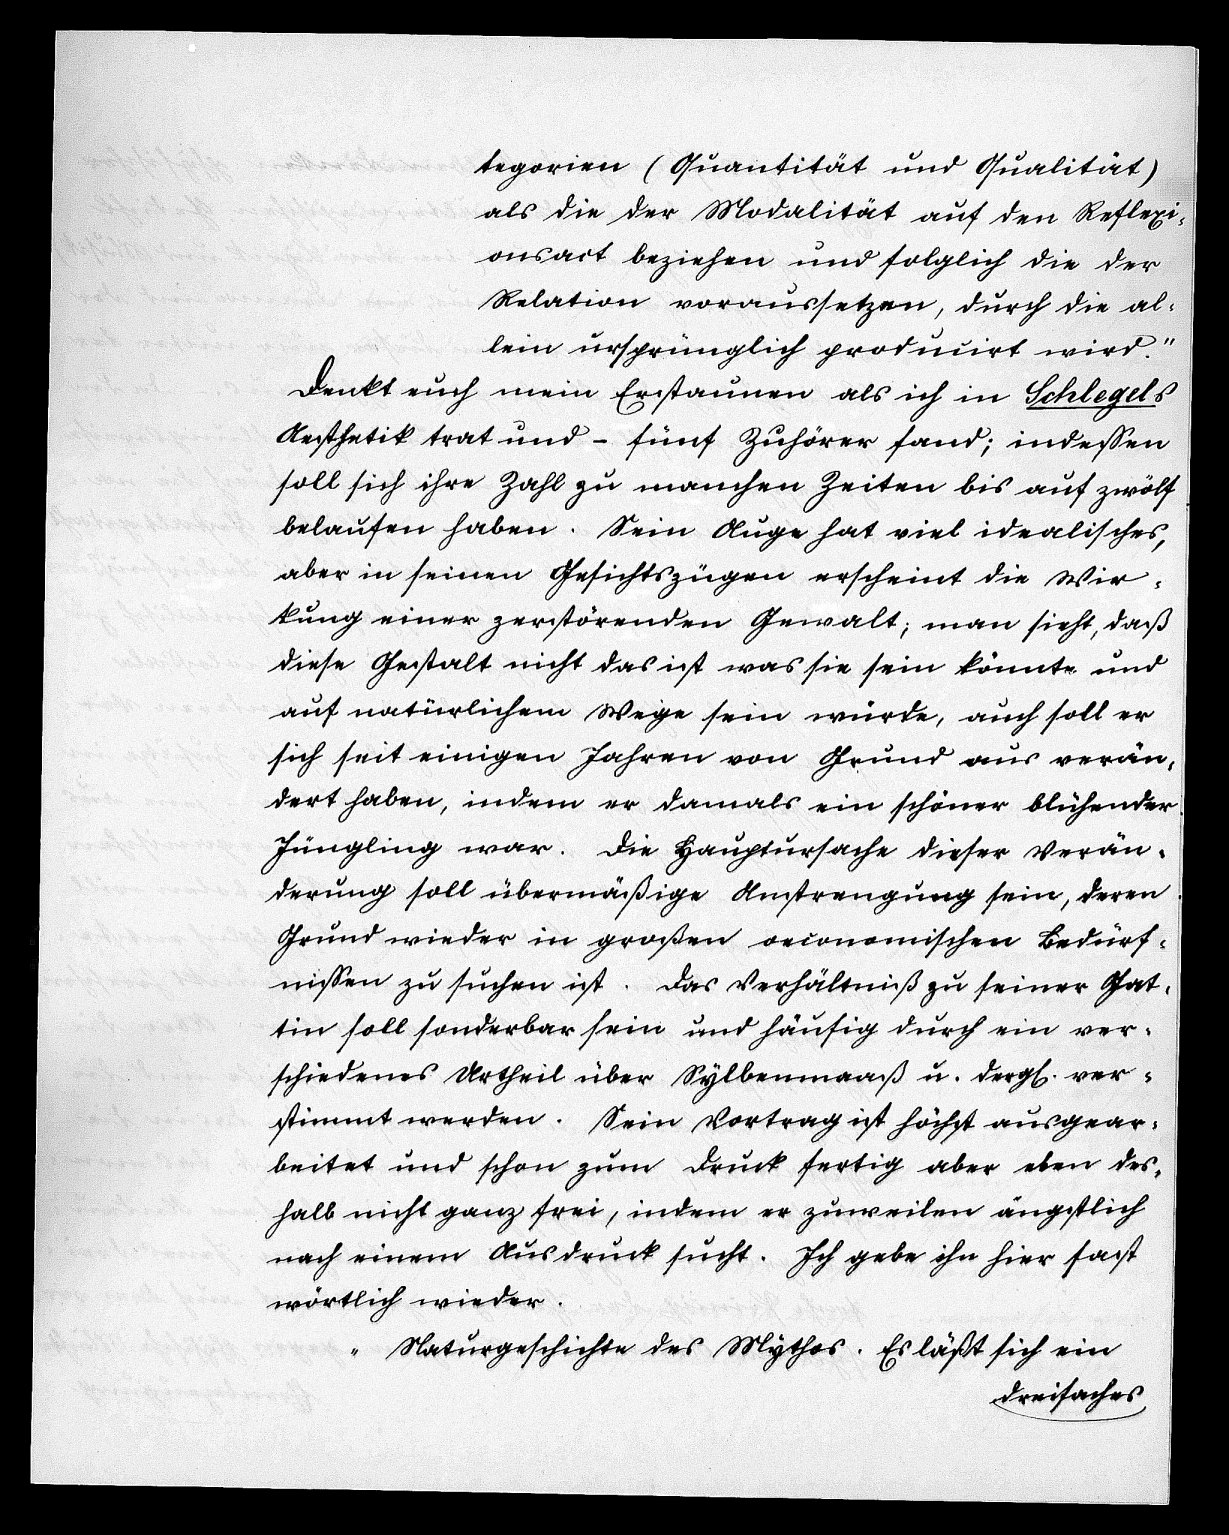 tegorien (Quantität und Qualität)
als die der Modalität auf den Reflexi-
onsact beziehen und folglich die der
Relation voraussetzen, durch die al-
lein ursprünglich producirt wird."
Denkt euch mein Erstaunen als ich in Schlegels
Aesthetik trat und – fünf Zuhörer fand; indessen
soll sich ihre Zahl zu manchen Zeiten bis auf zwölf
belaufen haben. Sein Auge hat viel idealisches,
aber in seinen Gesichtszügen erscheint die Wir-
kung einer zerstörenden Gewalt; man sieht, daß
diese Gestalt nicht das ist was sie sein könnte und
auf natürlichem Wege sein würde, auch soll er
sich seit einigen Jahren von Grund aus verän-
dert haben, indem er damals ein schöner blühender
Jüngling war. Die Hauptursache dieser Verän-
derung soll übermäßige Anstrengung sein, deren
Grund wieder in großen oeconomischen Bedürf-
nissen zu suchen ist. Das Verhältniß zu seiner Gat-
tin soll sonderbar sein und häufig durch ein ver-
schiedenes Urtheil über Sylbenmaaß u. dergl. ver-
stimmt werden. Sein Vortrag ist höchst ausgear-
beitet und schon zum Druck fertig aber eben des-
halb nicht ganz frei, indem er zuweilen ängstlich
nach einem Ausdruck sucht. Ich gebe ihn hier fast
wörtlich wieder.
" Naturgeschichte des Mythos. Es läßt sich ein
dreifaches